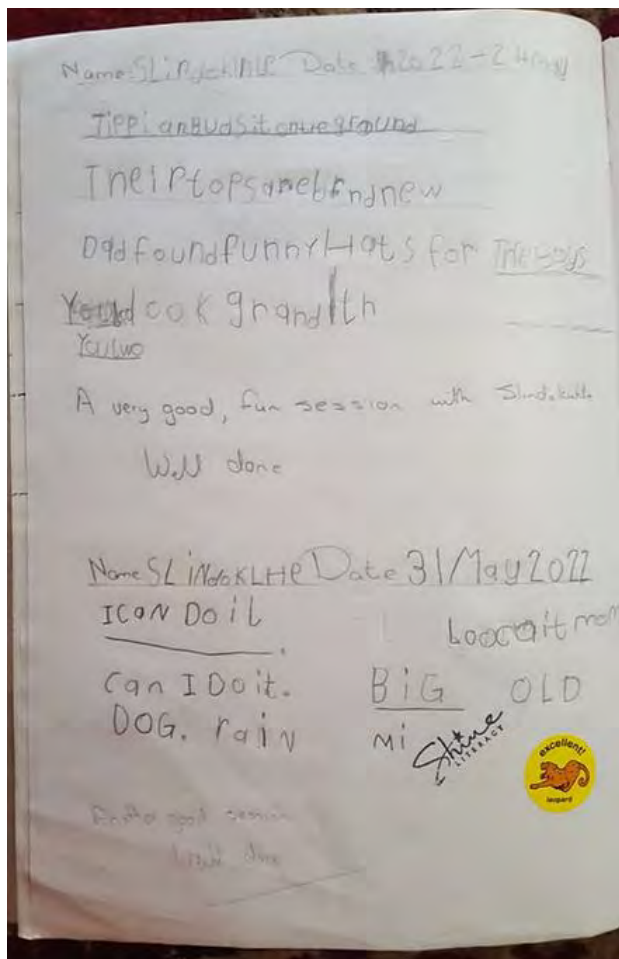 Name: SLiNdoKlHle Date 2022-24may
Tippi anBudsitontveground
TneiPtopsarebrndnew
Dad foundfunnyHats for TheBoys
Youdcook grandlth
Youtwo
A very good, fun session with Slindokuhle
Well done
Name SLiNdoKLHe Date 31/May2022
ICaN Do iL
Loocatit mom
Can I Do it.
BiG OLD
DOG. rain
Mi
Shine
LITERACY
excellent!
leopard
Another good session
Well done